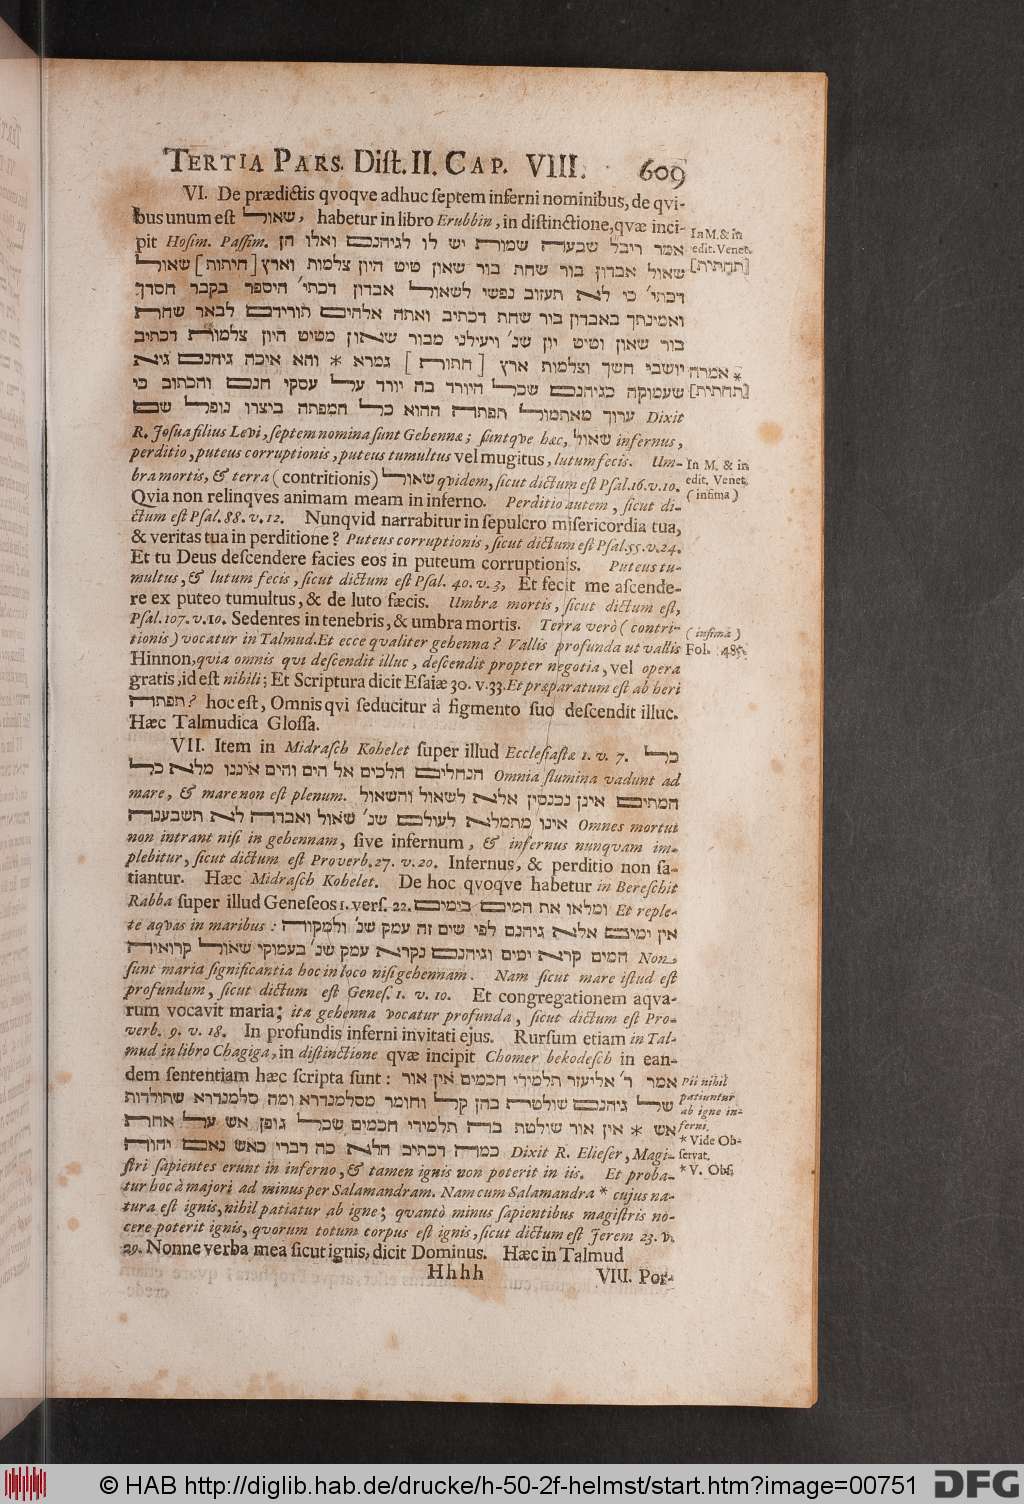 TERTIA PARS. Diſt. II. CAP. VIII. 609
VI. De prædictis qvoqve adhuc ſeptem inferni nominibus, de qvi-
bus unum eſt שאול, habetur in libro Erubbin, in diſtinctione, qvæ inci-
pit Hoſim. Paſſim. אמר ריבל שבעה שמות יש לו לגיהנם ואלו הן
שאול אבדון בור שחת בור שאון טיט היון צלמות וארץ [חיתות] שאול
דכתי׳ כי לא תעזוב נפשי לשאול אבדון דכתי׳ היספר בקבר חסדך
ואמינתך באבדון בור שחת דכתיב ואתה אלהים תורידם לבאר שחת
בור שאון וטיט יון שנ׳ ויעילני מבור שאון מטיט היון צלמות דכתיב
יושבי חשך וצלמות ארץ [חתות] גמרא * והא איכה גיהנם גיא
שעמוקה כגיהנם שכל היורד בה יורד על עסקי חנם והכתוב כי
ערוך מאתמול תפתה ההוא כל המפתה ביצרו נופל שם Dixit
R. Joſua filius Levi, ſeptem nomina ſunt Gehennæ; ſuntqve hæc, שאול infernus,
perditio, puteus corruptionis, puteus tumultus vel mugitus, lutum fecis. Um-
bra mortis, & terra (contritionis) שאול qvidem, ſicut dictum eſt Pſal. 16. v. 10.
Qvia non relinqves animam meam in inferno. Perditio autem, ſicut di-
ctum eſt Pſal. 88. v. 12. Nunqvid narrabitur in ſepulcro miſericordia tua,
& veritas tua in perditione? Puteus corruptionis, ſicut dictum eſt Pſal. 55. v. 24.
Et tu Deus deſcendere facies eos in puteum corruptionis. Puteus tu-
multus, & lutum fecis, ſicut dictum eſt Pſal. 40. v. 3, Et fecit me aſcende-
re ex puteo tumultus, & de luto fæcis. Umbra mortis, ſicut dictum eſt,
Pſal. 107. v. 10. Sedentes in tenebris, & umbra mortis. Terra verò (contri-
tionis) vocatur in Talmud. Et ecce qvaliter gehenna? Vallis profunda ut vallis
Hinnon, qvia omnis qvi deſcendit illuc, deſcendit propter negotia, vel opera
gratis, id eſt nihili; Et Scriptura dicit Eſaiæ 30. v. 33. Et præparatum eſt ab heri
תפתה? hoc eſt, Omnis qvi ſeducitur à figmento ſuo deſcendit illuc.
Hæc Talmudica Gloſſa.
VII. Item in Midraſch Kohelet ſuper illud Eccleſiaſtæ 1. v. 7. כל
הנחלים הלכים אל הים והים איננו מלא כל Omnia flumina vadunt ad
mare, & mare non eſt plenum. המתים אינן נכנסין אלא לשאול והשאול
אינו מתמלא לעולם שנ׳ שאול ואבדה לא תשבענה Omnes mortui
non intrant niſi in gehennam, ſive infernum, & infernus nunqvam im-
plebitur, ſicut dictum eſt Proverb. 27. v. 20. Infernus, & perditio non ſa-
tiantur. Hæc Midraſch Kohelet. De hoc qvoqve habetur in Bereſchit
Rabba ſuper illud Geneſeos 1. verſ. 22. ומלאו את המים בימים Et reple-
te aqvas in maribus: אין ימים אלא גיהנם לפי שים זה עמק שנ׳ ולמקוה
המים קרא ימים וגיהנם נקרא עמק שנ׳ בעמוקי שאול קרואיה Non
ſunt maria ſignificantia hoc in loco niſi gehennam. Nam ſicut mare iſtud eſt
profundum, ſicut dictum eſt Geneſ. 1. v. 10. Et congregationem aqva-
rum vocavit maria; ita gehenna vocatur profunda, ſicut dictum eſt Pro-
verb. 9. v. 18. In profundis inferni invitati ejus. Rurſum etiam in Tal-
mud in libro Chagiga, in diſtinctione qvæ incipit Chomer bekodeſch in ean-
dem ſententiam hæc ſcripta ſunt: אמר ר׳ אליעזר תלמידי חכמים אין אור
של גיהנם שולטת בהן קל וחומר מסלמנדרא ומה סלמנדרא שתולדות
אש * אין אור שולטת בדה תלמידי חכמים שכל גופן אש על אחת
כמה דכתיב הלא כה דברי כאש נאם יהוה Dixit R. Elieſer, Magi-
ſtri ſapientes erunt in inferno, & tamen ignis non poterit in iis. Et proba-
tur hoc à majori ad minus per Salamandram. Nam cum Salamandra * cujus na-
tura eſt ignis, nihil patiatur ab igne; qvantò minus ſapientibus magiſtris no-
cere poterit ignis, qvorum totum corpus eſt ignis, ſicut dictum eſt Jerem 23. v.
29. Nonne verba mea ſicut ignis, dicit Dominus. Hæc in Talmud
Hhhh VIII. Por-
In M. & in
edit. Venet.
[תחתית]
* אמרה
[תחתית]
In M. & in
edit. Venet.
(infima)
(infima)
Fol. 485.
Pii nihil
patiuntur
ab igne in-
ferni.
* Vide Ob-
ſervat.
* V. Obſ.
© HAB http://diglib.hab.de/drucke/h-50-2f-helmst/start.htm?image=00751
DFG